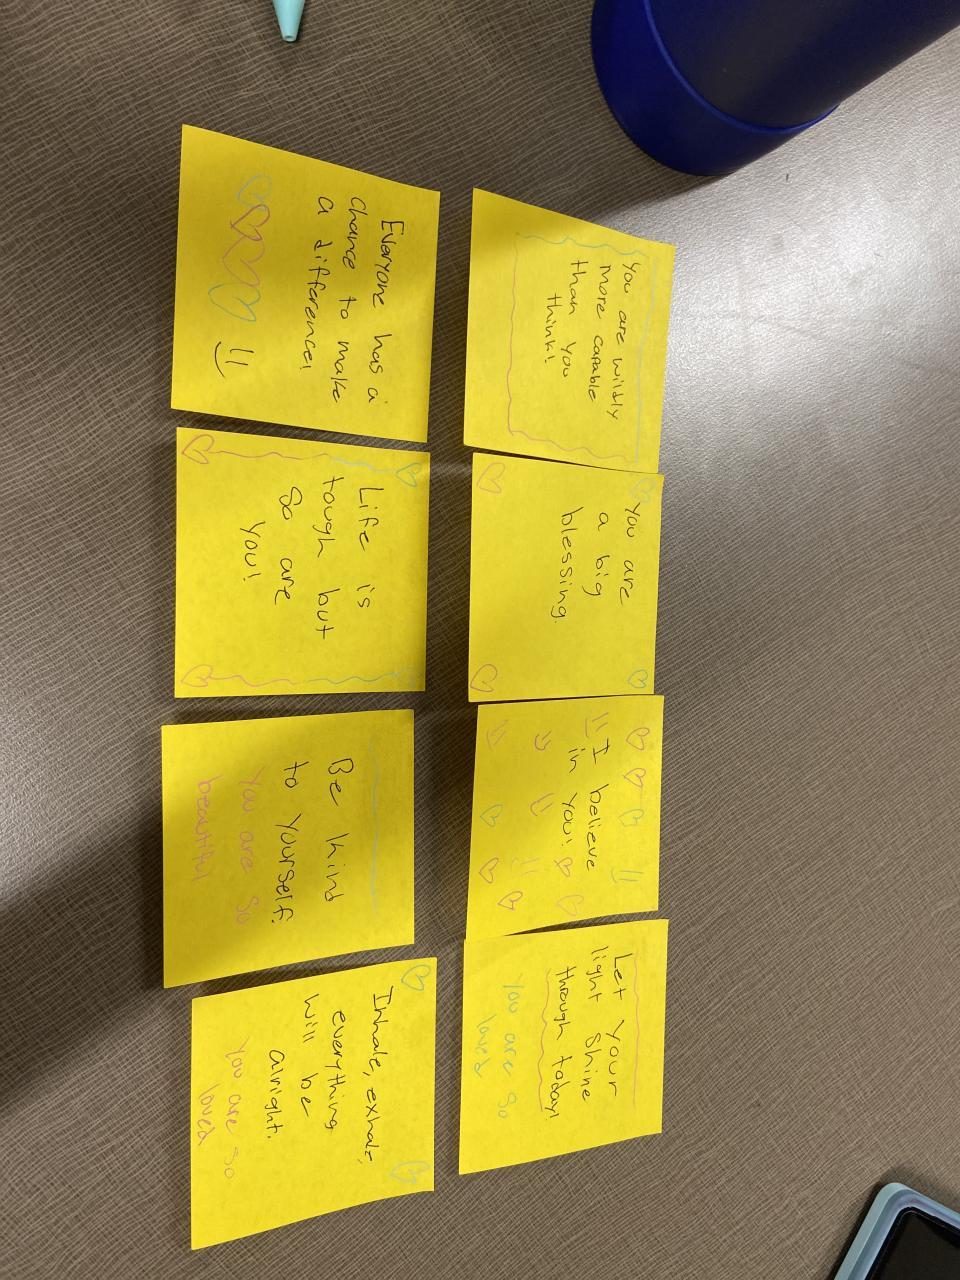 You are wildly
more capable
than you
think!
You are
a big
blessing.
I believe
in you!
Let your
light shine
through today!
you are so
loved
Everyone has a
chance to make
a difference!
Life is
tough but
so are
you!
Be kind
to yourself.
you are so
beautiful
Inhale, exhale,
everything
will be
alright.
you are so
loved